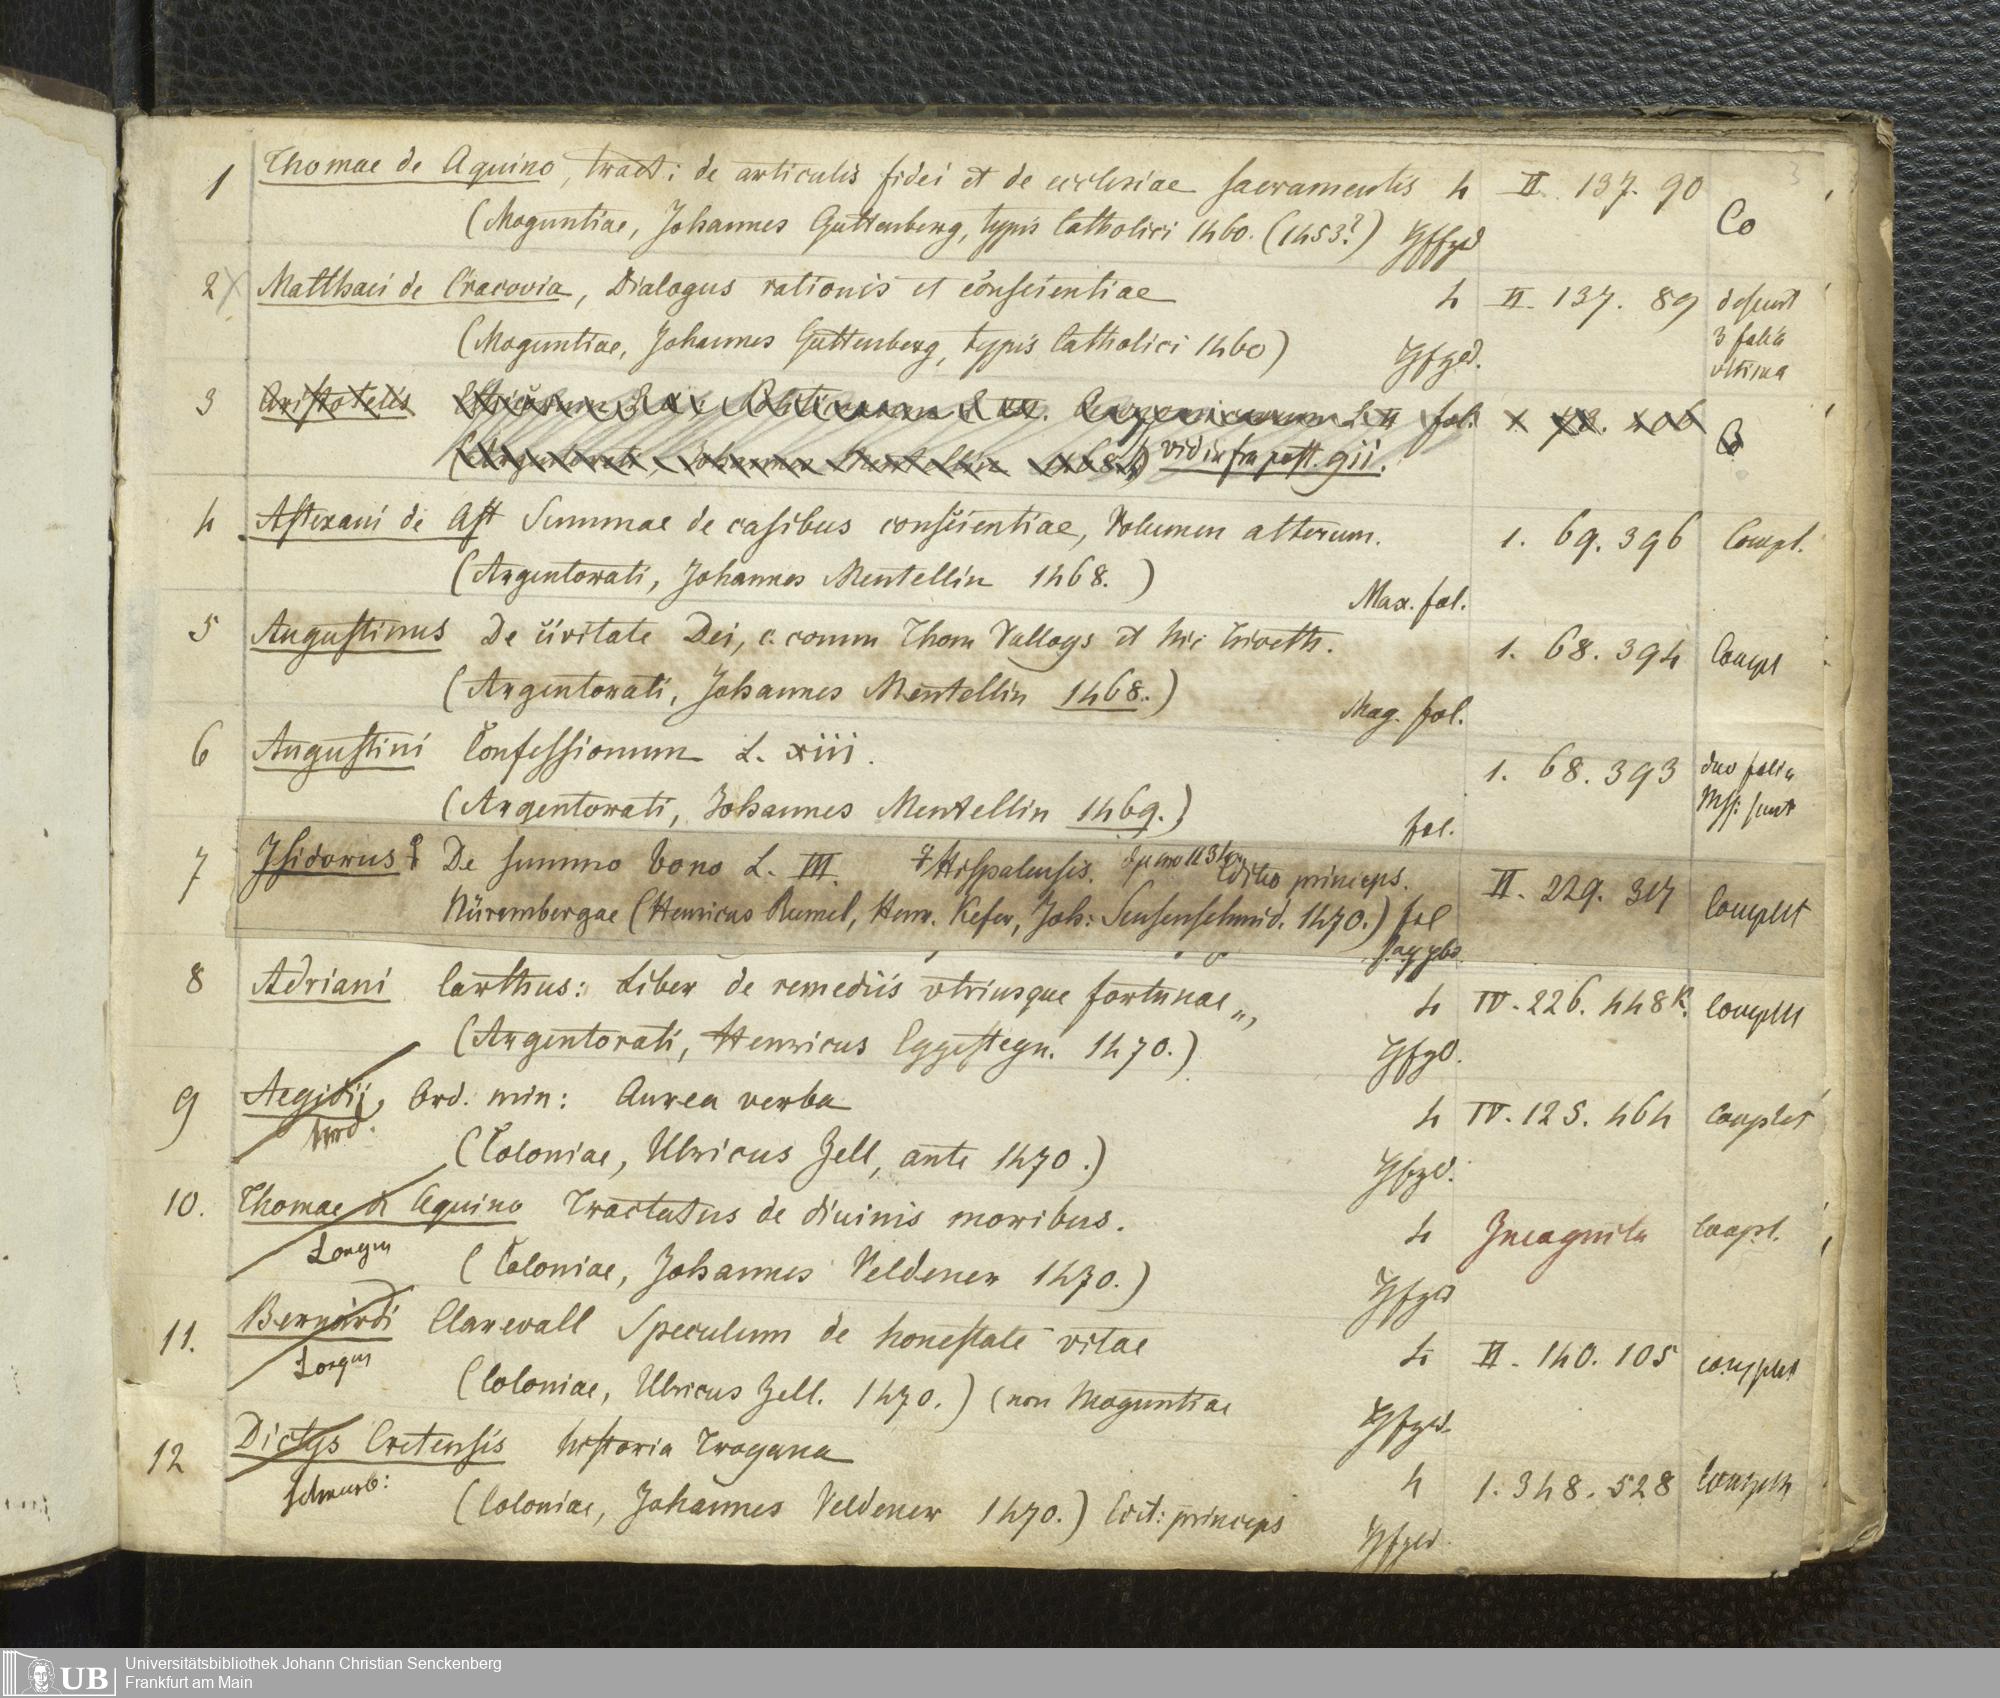 1 Thomae de Aquino, tract: de articulis fidei et de ecclesiae sacramentis 4 II. 137. 90 Co
(Moguntiae, Johannes Guttenberg, typis Catholici 1460. (1453?)
2 Matthaei de Cracovia, Dialogus rationis et conscientiae 4 II. 137. 89 desunt
(Moguntiae, Johannes Guttenberg, typis Catholici 1460) 3 folia
ultima
3 Aristotelis fol.
(Argentorati, Johannes Mentellin 1468.) vid infra post. 911.
4 Astexani de Ast Summae de casibus conscientiae, Volumen alterum. 1. 69. 396 Compl.
(Argentorati, Johannes Mentellin 1468.) Max. fol.
5 Augustinus De civitate Dei, c. comm Thom Valloys et Nic Triveth. 1. 68. 394 Compl
(Argentorati, Johannes Mentellin 1468.) Mag. fol.
6 Augustini Confessionum L. xiii. 1. 68. 393 duo folia
(Argentorati, Johannes Mentellin 1469.) fol. Mss: sunt
7 Isidorus De summo bono L. III. Hispalensis. Editio princeps. II. 229. 317 Complet
Nürembergae (Henricus Rumel, Henr. Kefer, Joh: Sensenschmid. 1470.) fol
8 Adriani Carthus: Liber de remediis utriusque fortunae 4 IV. 226. 448 Complet
(Argentorati, Henricus Eggesteyn. 1470.)
9 Aegidii, Ord. min: Aurea verba 4 IV. 125. 464 Complet
(Coloniae, Ulricus Zell, ante 1470.)
10. Thomae de Aquino Tractatus de diuinis moribus. 4 Incognita Compl.
Longin
(Coloniae, Johannes Veldener 1470.)
11. Bernardi Clarevall Speculum de honestate vitae 4 II. 140. 105 complet
Longin
(Coloniae, Ulricus Zell. 1470.) (non Moguntiae
12 Dictys Cretensis historia Troyana 4 1. 348. 528
(Coloniae, Johannes Veldener 1470.) Edit: princeps
UB Universitätsbibliothek Johann Christian Senckenberg
Frankfurt am Main